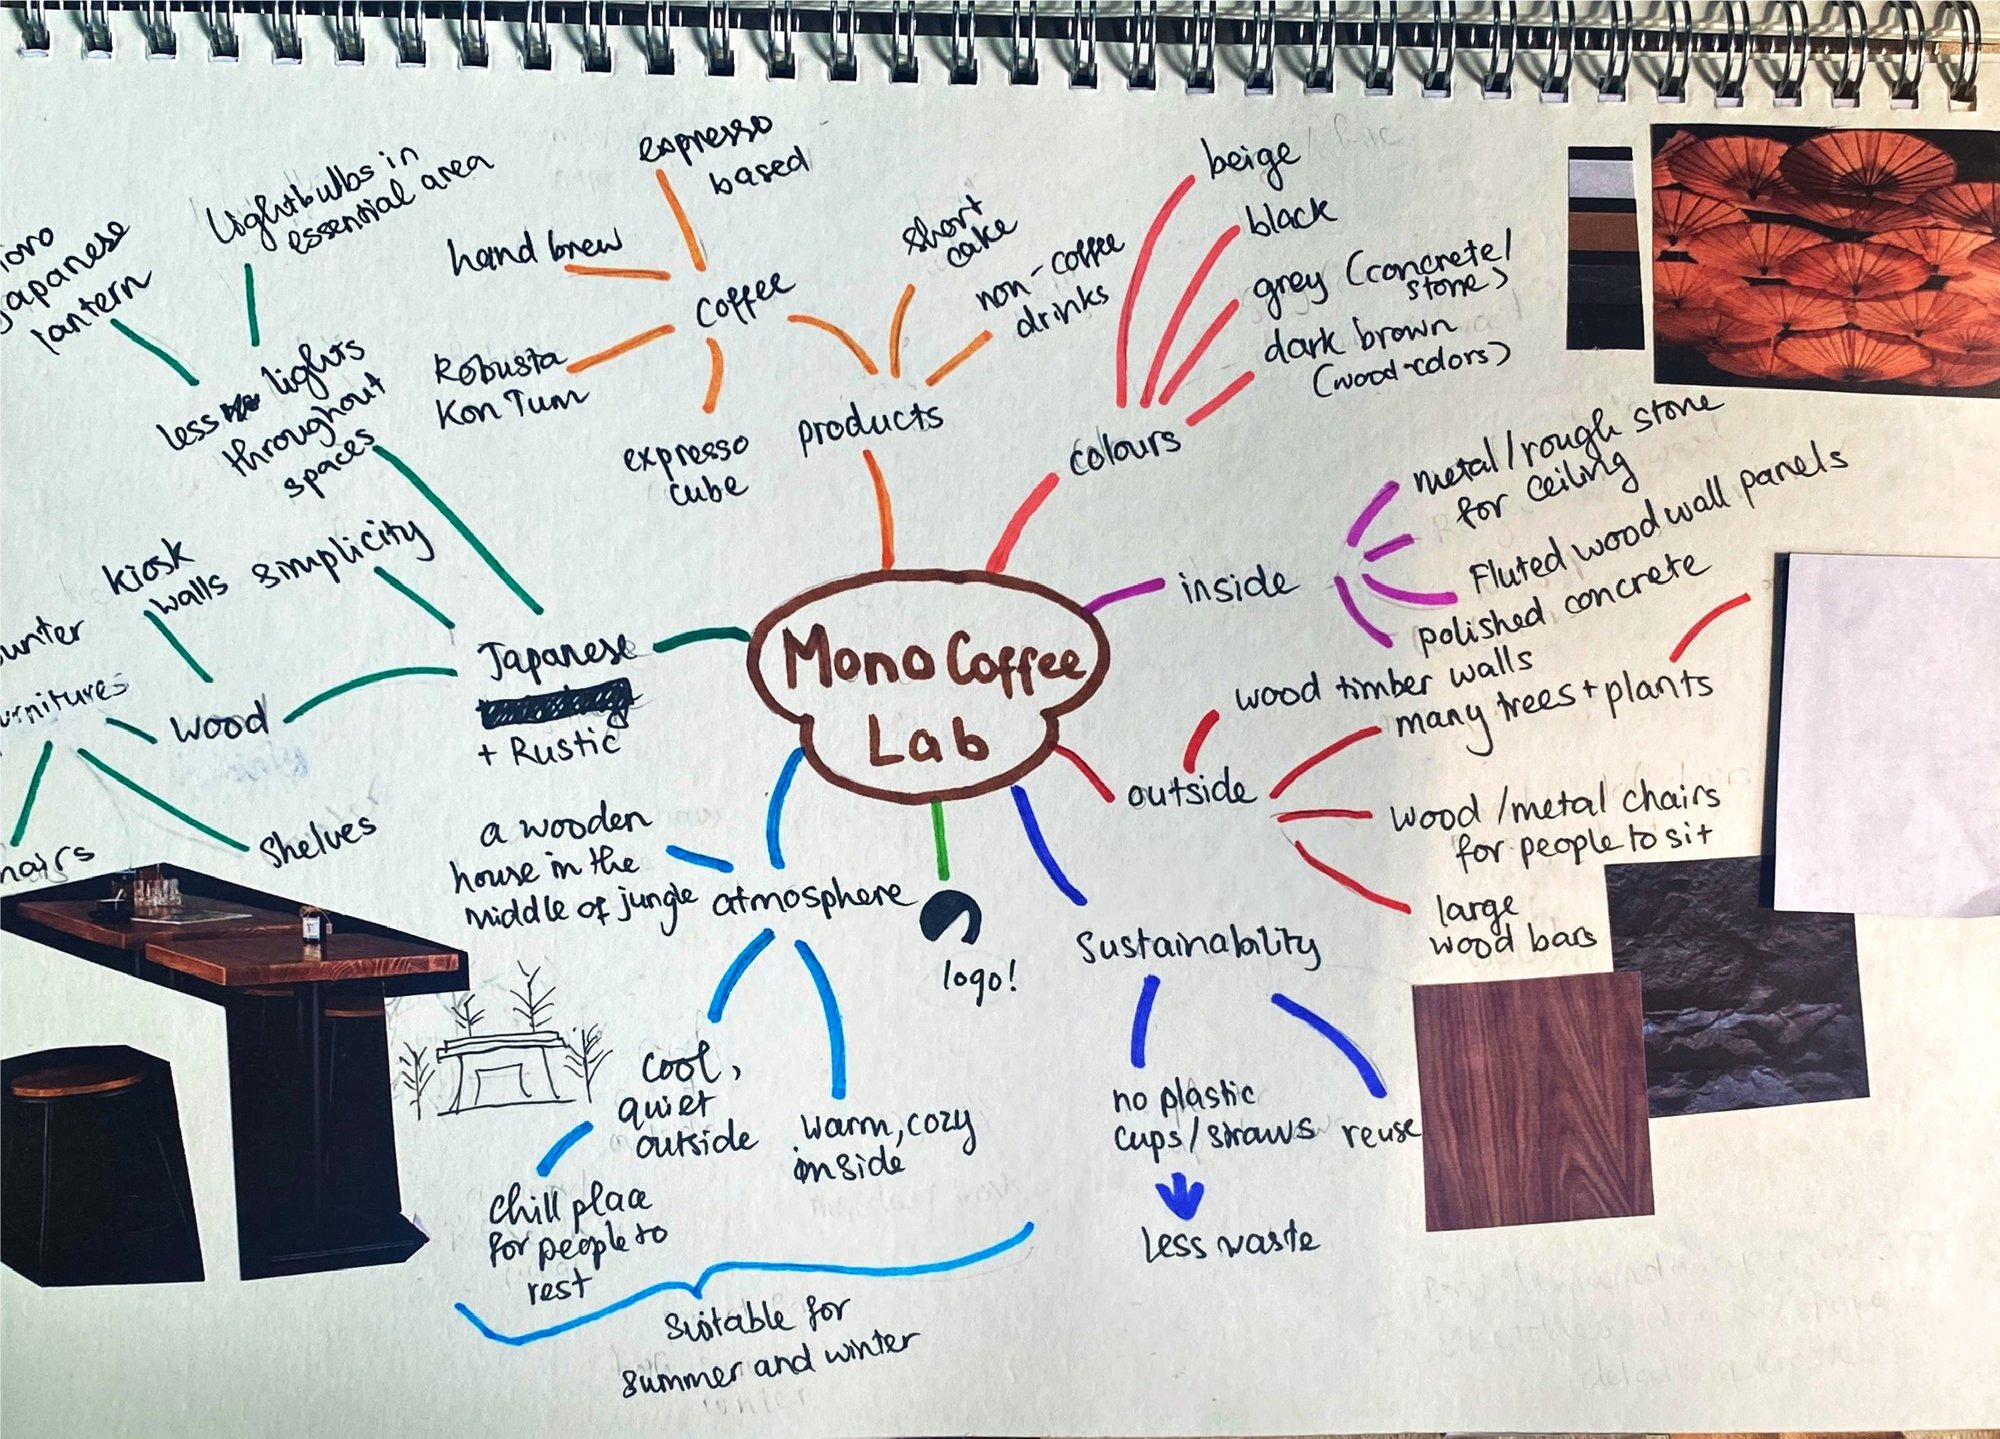 Mono Coffee
Lab
products
coffee
espresso
based
hand brew
Robusta
Kon Tum
expresso
cube
short
cake
non-coffee
drinks
colours
beige
black
grey (concrete/
stone)
dark brown
(wood-colors)
inside
metal/rough stone
for ceiling
Fluted wood wall panels
polished concrete
outside
wood timber walls
many trees + plants
wood/metal chairs
for people to sit
large
wood bars
Sustainability
no plastic
cups/straws
less waste
reuse
logo!
atmosphere
a wooden
house in the
middle of jungle
cool,
quiet
outside
chill place
for people to
rest
warm, cozy
inside
Suitable for
summer and winter
Japanese
+ Rustic
simplicity
less lights
throughout
spaces
Lightbulbs in
essential area
Japanese
lantern
wood
kiosk
walls
shelves